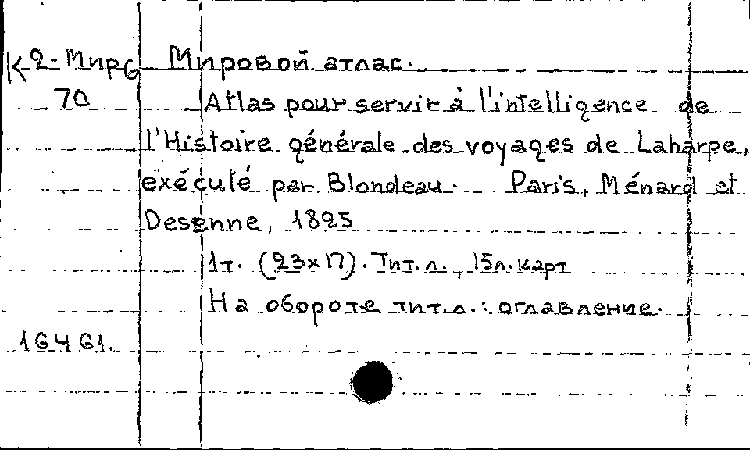 К 2-Мир6 Мировой атлас.
70 Atlas pour servir à l'intelligence de
l'Histoire générale des voyages de Laharpe,
exécuté par Blondeau. Paris, Ménard et
Desenne, 1825
1т. (23x17). Тит.л., 15л.карт
На обороте тит.л.: оглавление.
16461.